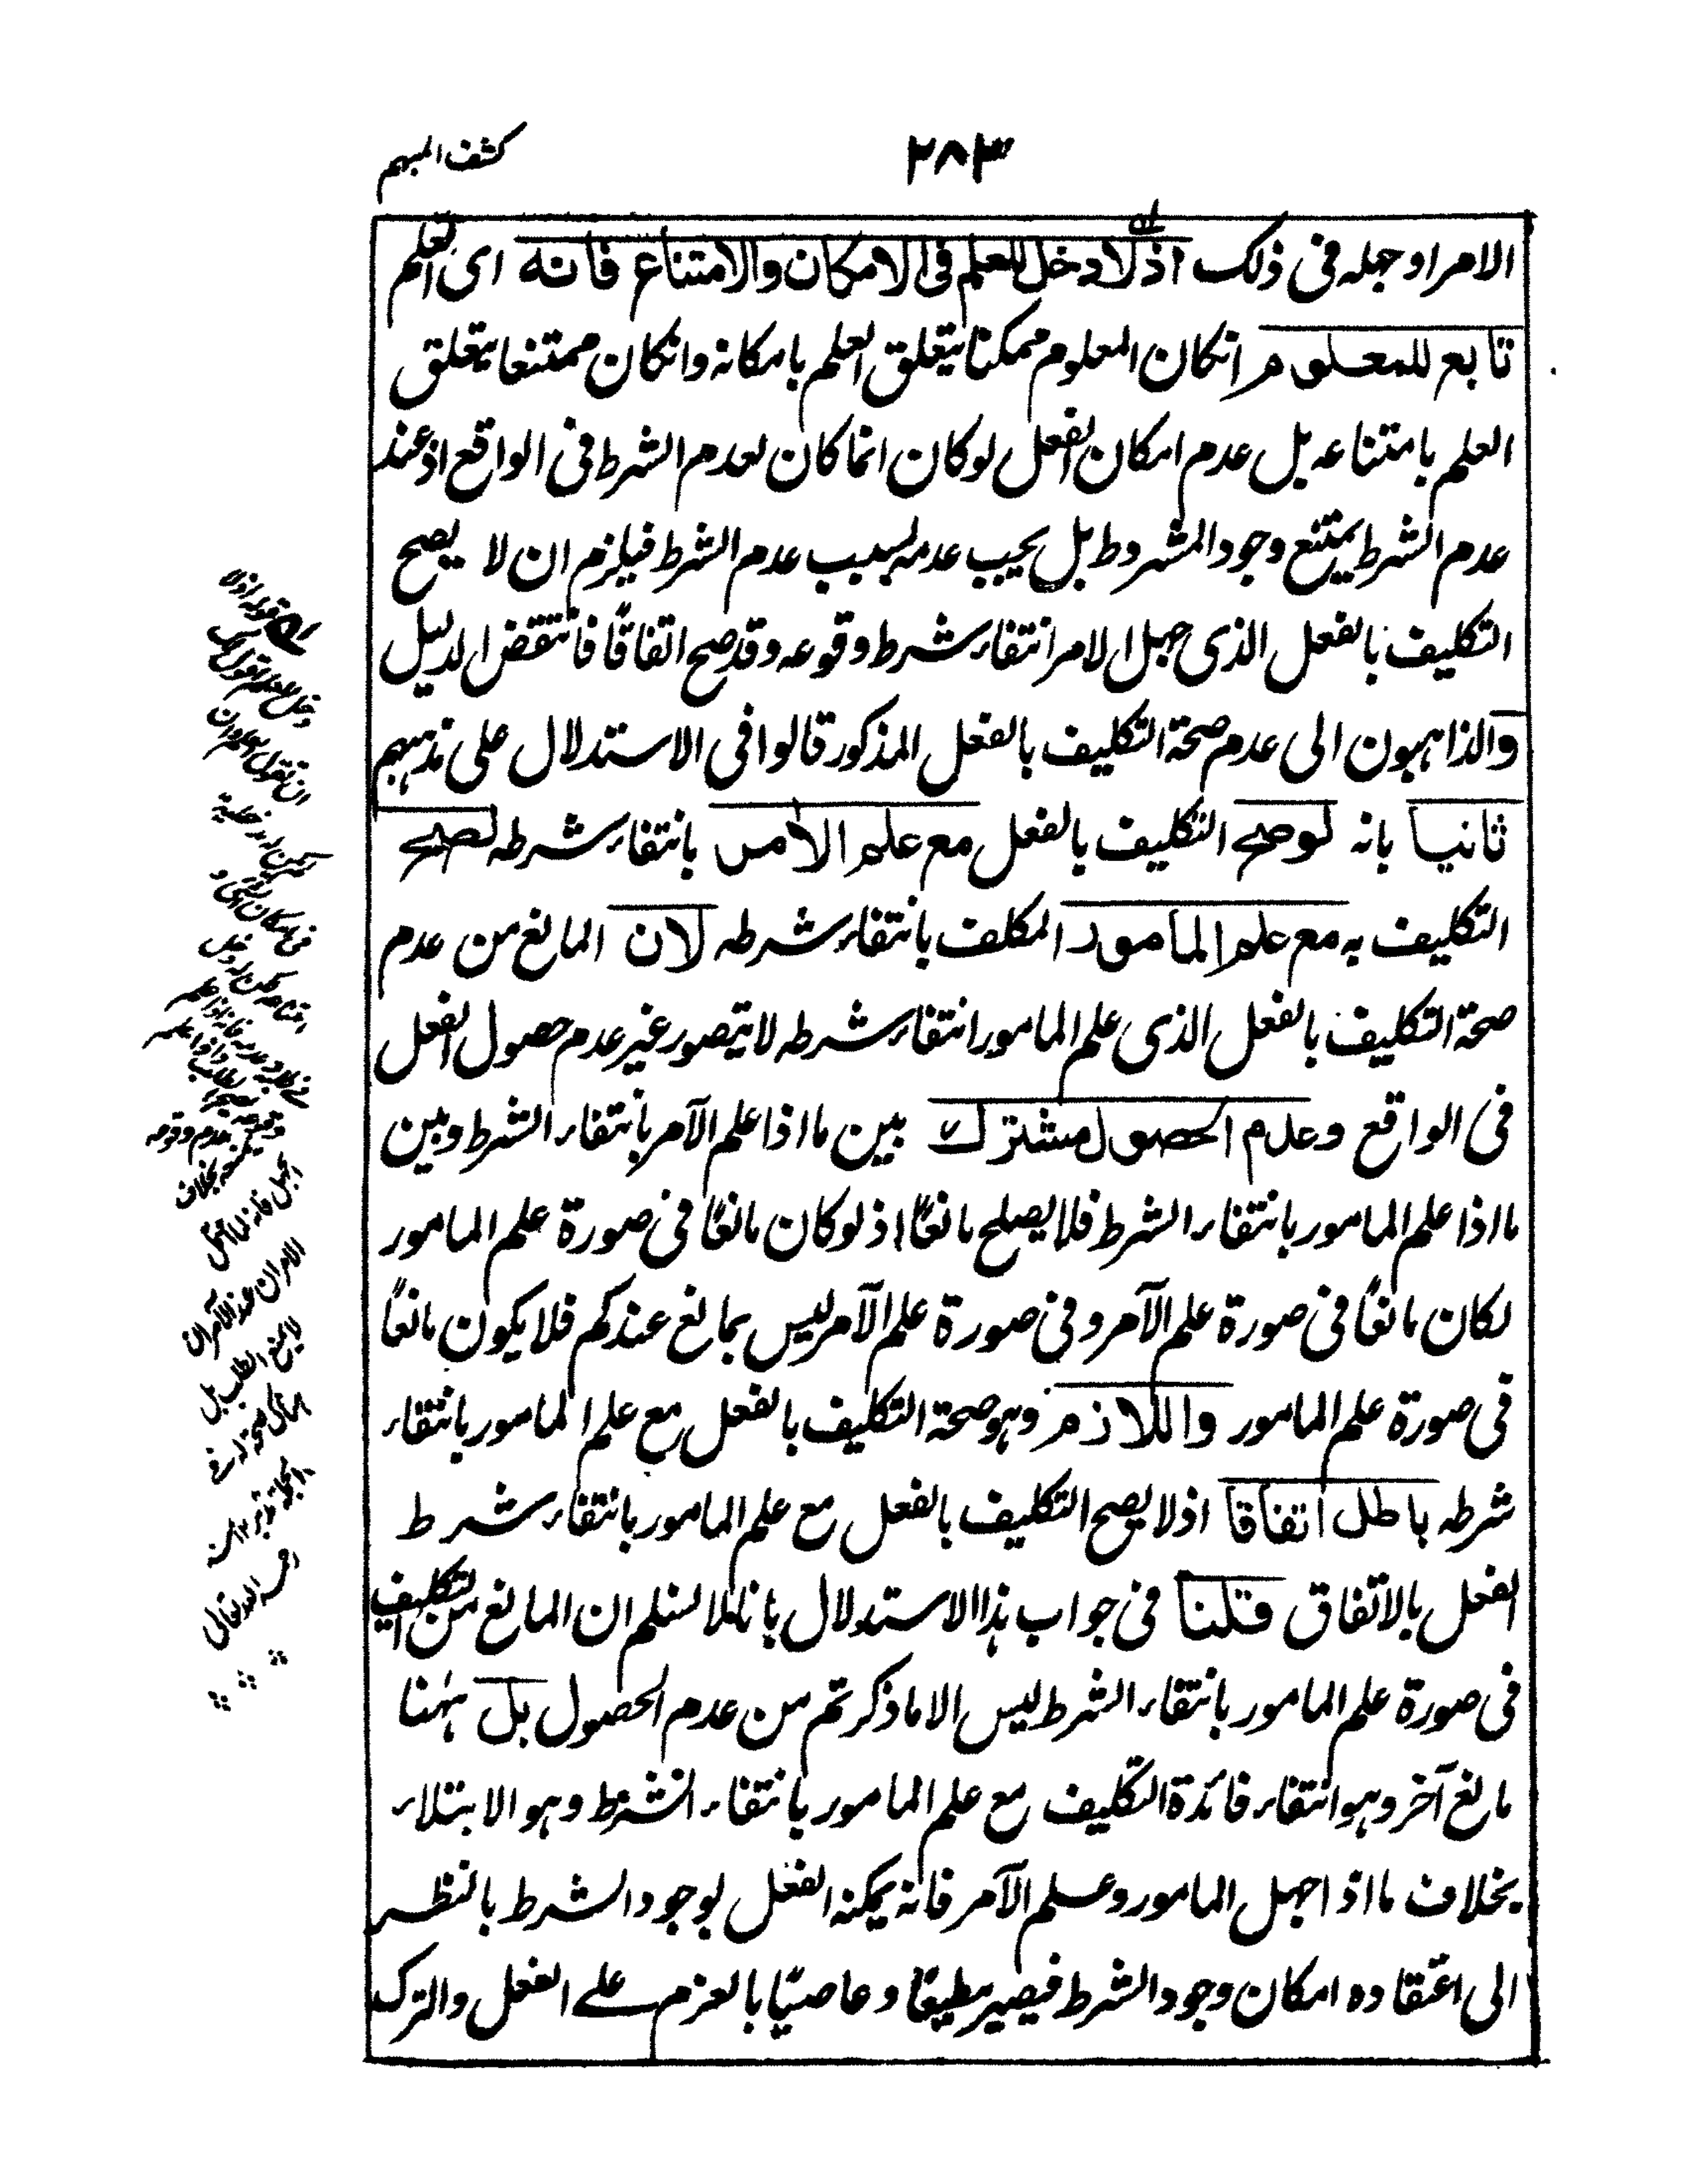 ٢٨٣
كشف المبهم
الامر او جهله فى ذلك اذ لا دخل للعلم فى الامكان والامتناع فانه اى العلم
تابع للمعلوم انكان المعلوم ممكنا يتعلق العلم بامكانه وانكان ممتنعا يتعلق
العلم بامتناعه بل عدم امكان الفعل لوكان انما كان لعدم الشرط فى الواقع اذ عند
عدم الشرط يمتنع وجود المشروط بل يجب عدمه بسبب عدم الشرط فيلزم ان لا يصح
التكليف بالفعل الذى جهل الامر انتفاء شرط وقوعه وقد صح اتفاقًا فانتقض الدليل
والذاهبون الى عدم صحة التكليف بالفعل المذكور قالوا فى الاستدلال على مذهبهم
ثانيا بانه لوصح التكليف بالفعل مع علم الامر بانتفاء شرطه لصح
التكليف به مع علم المامور المكلف بانتفاء شرطه لان المانع من عدم
صحة التكليف بالفعل الذى علم المامور انتفاء شرطه لا يتصور غير عدم حصول الفعل
فى الواقع وعدم الحصول مشترك بين ما اذا علم الآمر بانتفاء الشرط وبين
ما اذا علم المامور بانتفاء الشرط فلا يصلح مانعًا اذ لوكان مانعًا فى صورة علم المامور
لكان مانعًا فى صورة علم الآمر وفى صورة علم الآمر ليس بمانع عندكم فلا يكون مانعًا
فى صورة علم المامور واللازم وهو صحة التكليف بالفعل مع علم المامور بانتفاء
شرطه باطل اتفاقا اذ لا يصح التكليف بالفعل مع علم المامور بانتفاء شرط
الفعل بالاتفاق قلنا فى جواب هذا الاستدلال بانا لا نسلم ان المانع من التكليف
فى صورة علم المامور بانتفاء الشرط ليس الا ما ذكرتم من عدم الحصول بل ههنا
مانع آخر وهو انتفاء فائدة التكليف مع علم المامور بانتفاء الشرط وهو الابتلاء
بخلاف ما اذا جهل المامور وعلم الآمر فانه يمكنه الفعل لوجود الشرط بالنظر
الى اعتقاده امكان وجود الشرط فيصير مطيعًا وعاصيًا بالعزم على الفعل والترك
قوله اذ لا
دخل للعلم اقول
الجهل فانه
لا يمنع الطلب بل
رحمه الله تعالى